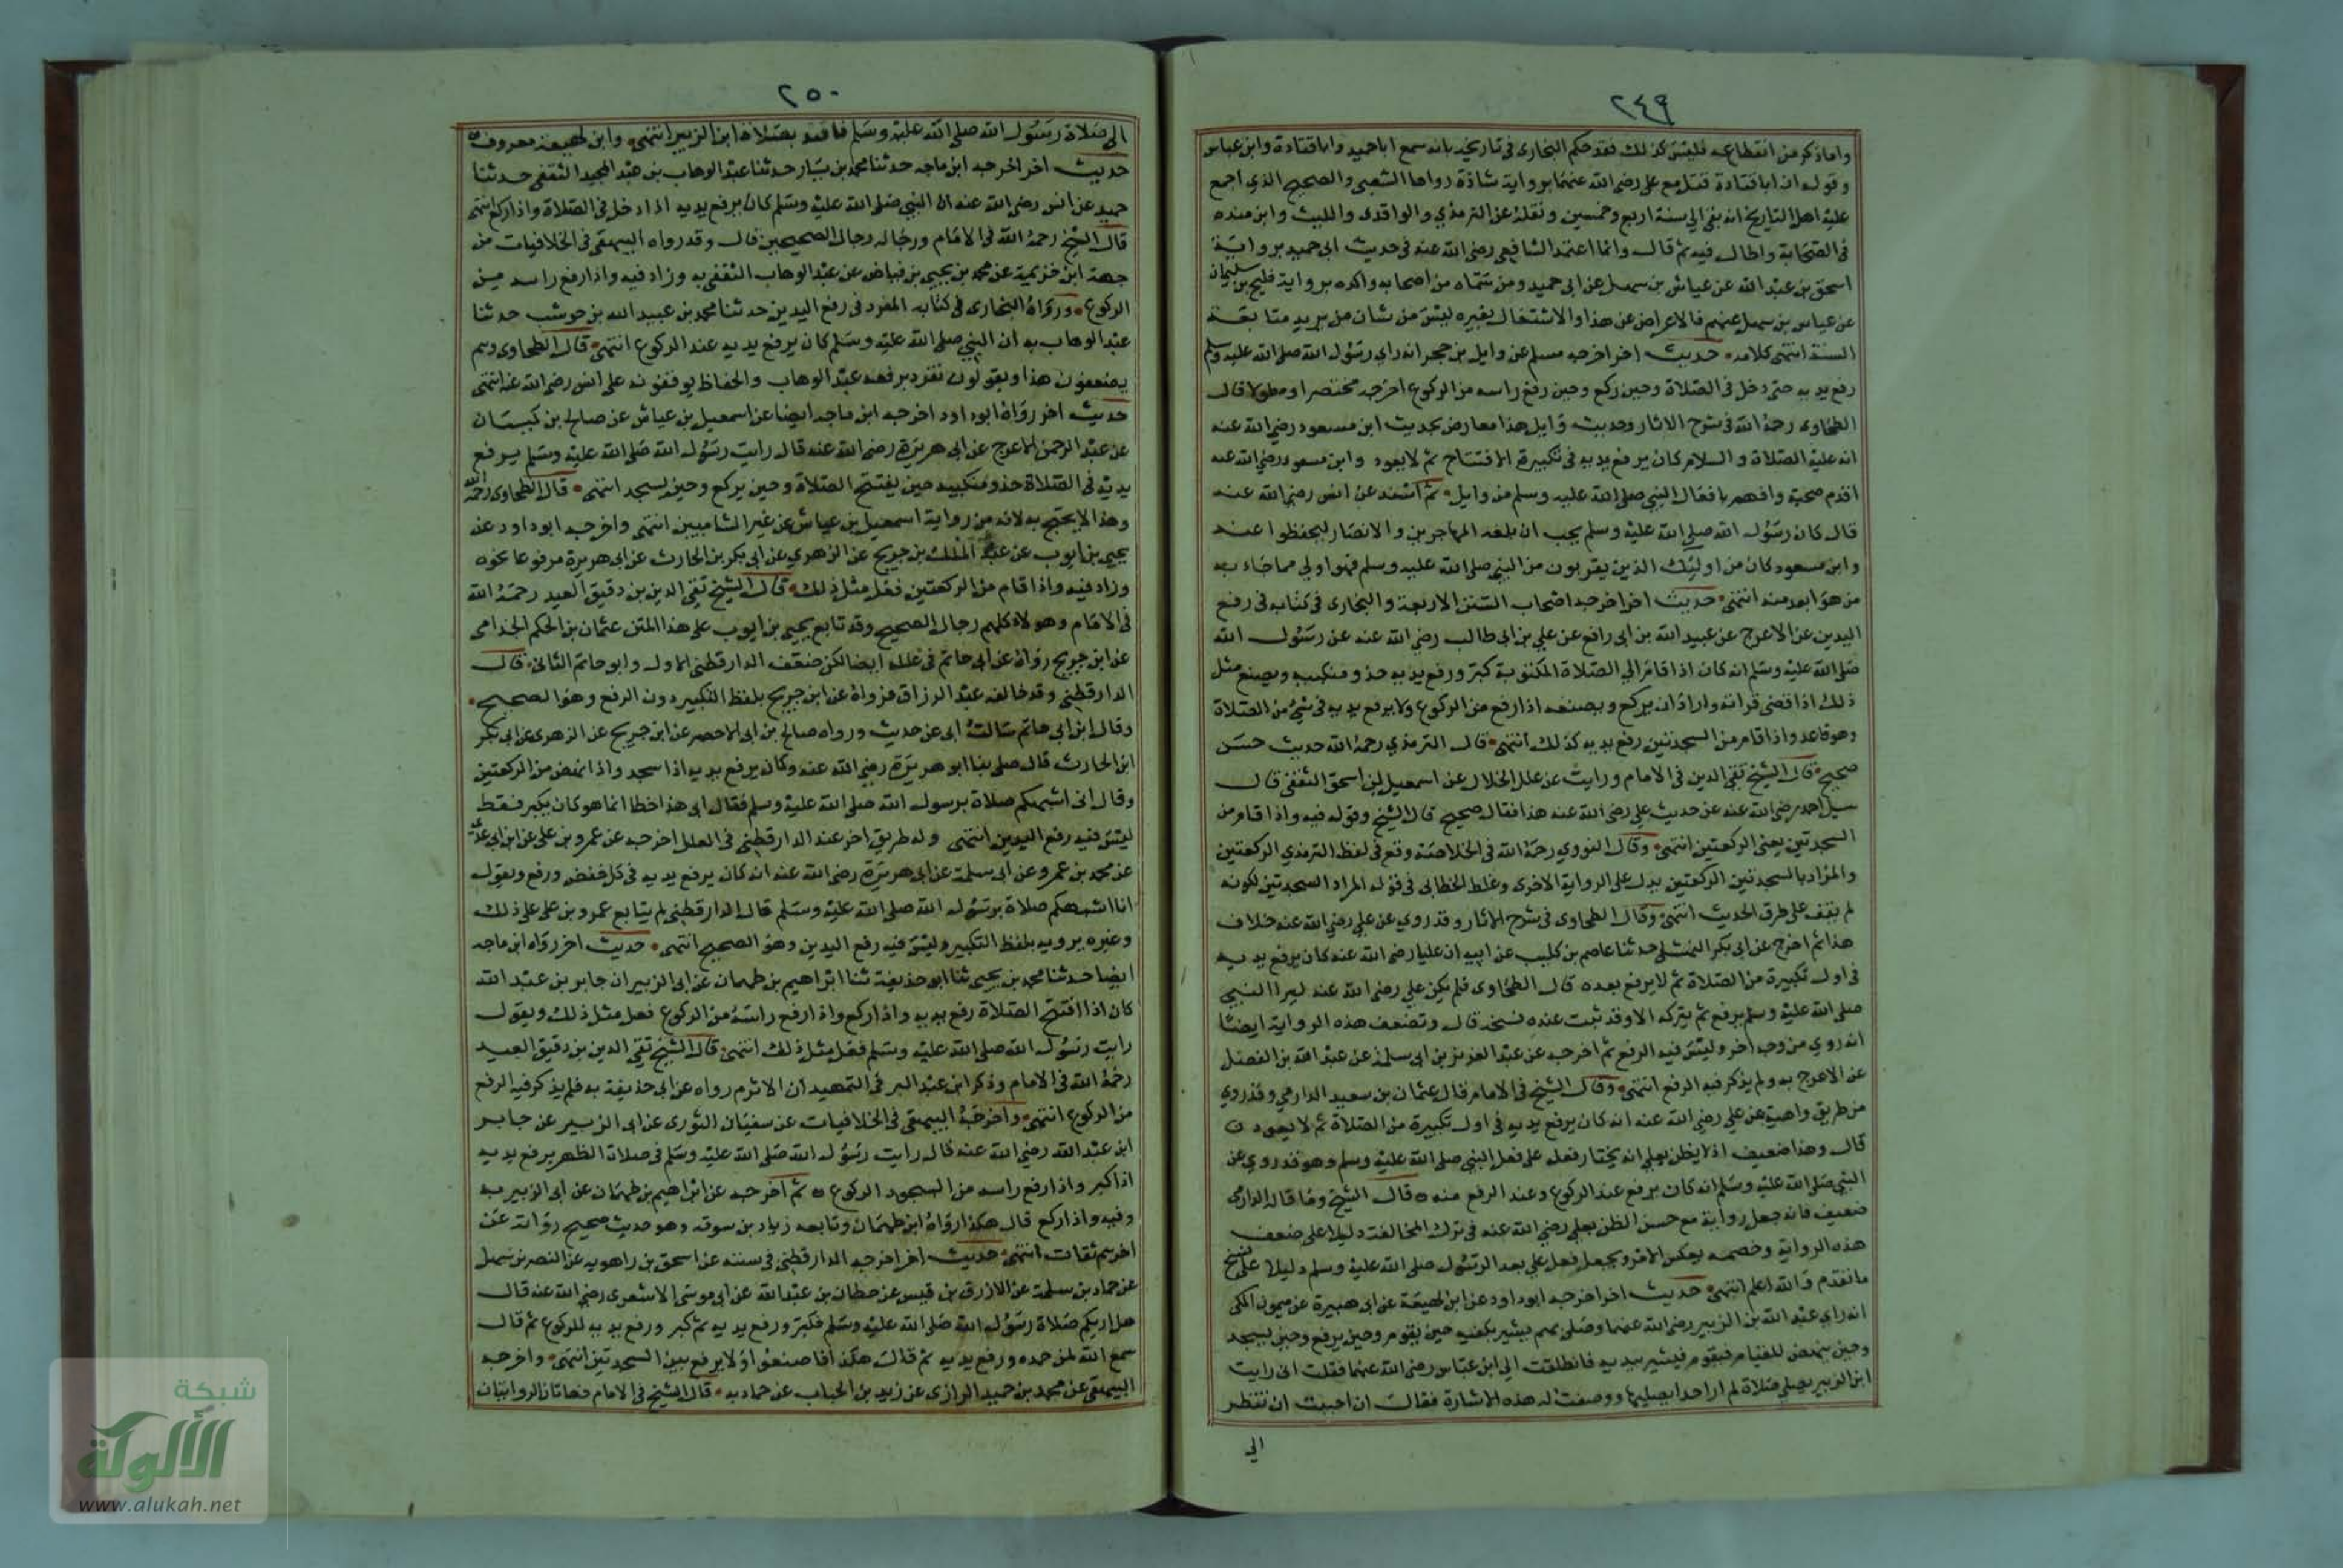 ٢٤٩
واما ذكر من انقطاعه فليس كذلك فقد حكم البخارى فى تاريخه بانه سمع ابا حميد وابا قتادة وابن عباس
وقوله ان ابا قتادة قتل مع على رضى الله عنهما برواية شاذة رواها الشعبى والصحيح الذى اجمع
عليه اهل التاريخ انه بقى الى سنة اربع وخمسين ونقله عن الترمذي والواقدى والليث وابن منده
فى الصحابة واطال فيه ثم قال وانما اعتمد الشافعى رضى الله عنه فى حديث ابى حميد برواية
اسحق بن عبد الله عن عباس بن سهل عن ابى حميد ومن سماه من اصحابه واكده برواية فليح بن سليمان
عن عباس بن سهل عنهم فالاعراض عن هذا والاشتغال بغيره ليس من شان من يريد متابعة
السنة انتهى كلامه حديث اخر اخرجه مسلم عن وايل بن حجر انه راى رسول الله صلى الله عليه وسلم
رفع يديه حين دخل فى الصلاة وحين ركع وحين رفع راسه من الركوع اخرجه مختصرا ومطولا قال
الطحاوى رحمه الله فى شرح الاثار وحديث وايل هذا معارض بحديث ابن مسعود رضى الله عنه
انه عليه الصلاة والسلام كان يرفع يديه فى تكبيرة الافتتاح ثم لا يعود وابن مسعود رضى الله عنه
اقدم صحبة وافهم بافعال النبى صلى الله عليه وسلم من وايل ثم اسند عن انس رضى الله عنه
قال كان رسول الله صلى الله عليه وسلم يحب ان يليه المهاجرين والانصار ليحفظوا عنه
وابن مسعود كان من اوليك الذين يقربون من النبى صلى الله عليه وسلم فهو اولى مما جاء به
من هو ابعد منه انتهى حديث اخر اخرجه اصحاب السنن الاربعة والبخارى فى كتابه فى رفع
اليدين عن الاعرج عن عبيد الله بن ابى رافع عن على بن ابى طالب رضى الله عنه عن رسول الله
صلى الله عليه وسلم انه كان اذا قام الى الصلاة المكتوبة كبر ورفع يديه حذو منكبيه ويصنع مثل
ذلك اذا قضى قراته واراد ان يركع ويصنعه اذا رفع من الركوع ولا يرفع يديه فى شئ من الصلاة
وهو قاعد واذا قام من السجدتين رفع يديه كذلك انتهى قال الترمذي رحمه الله حديث حسن
صحيح قال الشيخ تقى الدين فى الامام ورايت عن علل الخلال عن اسمعيل بن اسحق الثقفى قال
سيل احمد رضى الله عنه عن حديث على رضى الله عنه هذا فقال صحيح قال الشيخ وقوله فيه واذا قام من
السجدتين يعنى الركعتين انتهى وقال النووي رحمه الله فى الخلاصة وقع فى لفظ الترمذي الركعتين
والمراد بالسجدتين الركعتين يدل على الرواية الاخرى وغلط الخطابى فى قوله المراد السجدتين لكونه
لم يقف على طرق الحديث انتهى وقال الطحاوى فى شرح الاثار وقد روي عن على رضى الله عنه خلاف
هذا ثم اخرج عن ابى بكر النهشلى حدثنا عاصم بن كليب عن ابيه ان عليا رضى الله عنه كان يرفع يديه
فى اول تكبيرة من الصلاة ثم لا يرفع بعده قال الطحاوى فلم يكن على رضى الله عنه ليرا النبى
صلى الله عليه وسلم يرفع ثم يتركه الا وقد ثبت عنده نسخه قال وتضعف هذه الرواية ايضا
انه روي من وجه اخر وليس فيه الرفع ثم اخرجه عن عبد العزيز بن ابى سلمة عن عبد الله بن الفضل
عن الاعرج به ولم يذكر فيه الرفع انتهى وقال الشيخ فى الامام قال عثمان بن سعيد الدارمي وقد روي
من طريق واهية عن على رضى الله عنه انه كان يرفع يديه فى اول تكبيرة من الصلاة ثم لا يعود
قال وهذا ضعيف اذ لا يظن بعلى انه يختار فعله على فعل النبى صلى الله عليه وسلم وهو قد روي عن
النبى صلى الله عليه وسلم انه كان يرفع عند الركوع وعند الرفع منه قال الشيخ وما قاله الدارمى
ضعيف فانه جعل رواية مع حسن الظن بعلى رضى الله عنه فى ترك المخالفة دليلا على ضعف
هذه الرواية وخصمه يعكس الامر ويجعل فعل على بعد الرسول صلى الله عليه وسلم دليلا على نسخ
ما تقدم والله اعلم انتهى حديث اخر اخرجه ابو داود عن ابن لهيعة عن ابى هبيرة عن ميمون المكى
انه راى عبد الله بن الزبير رضى الله عنهما وصلى بهم يشير بكفيه حين يقوم وحين يرفع وحين يسجد
وحين ينهض للقيام فيقوم فيشير بيديه فانطلقت الى ابن عباس رضى الله عنهما فقلت انى رايت
ابن الزبير يصلى صلاة لم ار احدا يصليها ووصفت له هذه الاشارة فقال ان احببت ان تنظر
الى
٢٥٠
الى صلاة رسول الله صلى الله عليه وسلم فاقتد بصلاة ابن الزبير انتهى وابن لهيعة معروف
حديث اخر اخرجه ابن ماجه حدثنا محمد بن بشار حدثنا عبد الوهاب بن عبد المجيد الثقفى حدثنا
حميد عن انس رضى الله عنه ان النبى صلى الله عليه وسلم كان يرفع يديه اذا دخل فى الصلاة واذا ركع انتهى
قال الشيخ رحمه الله فى الامام ورجاله رجال الصحيحين قال وقد رواه البيهقى فى الخلافيات من
جهة ابن خزيمة عن محمد بن يحيى بن فياض عن عبد الوهاب الثقفى به وزاد فيه واذا رفع راسه من
الركوع ورواه البخارى فى كتابه المفرد فى رفع اليدين حدثنا محمد بن عبيد الله بن حوشب حدثنا
عبد الوهاب به ان النبى صلى الله عليه وسلم كان يرفع يديه عند الركوع انتهى قال الطحاوى وهم
يضعفون هذا ويقولون تفرد برفعه عبد الوهاب والحفاظ يوقفونه على انس رضى الله عنه انتهى
حديث اخر رواه ابو داود اخرجه ابن ماجه ايضا عن اسمعيل بن عياش عن صالح بن كيسان
عن عبد الرحمن الاعرج عن ابى هريرة رضى الله عنه قال رايت رسول الله صلى الله عليه وسلم يرفع
يديه فى الصلاة حذو منكبيه حين يفتتح الصلاة وحين يركع وحين يسجد انتهى قال الطحاوى رحمه الله
وهذا لا يحتج به لانه من رواية اسمعيل بن عياش عن غير الشاميين انتهى واخرجه ابو داود عنه
يحيى بن ايوب عن عبد الملك بن جريج عن الزهري عن ابى بكر بن الحارث عن ابى هريرة مرفوعا نحوه
وزاد فيه واذا قام من الركعتين فعل مثل ذلك قال الشيخ تقى الدين بن دقيق العيد رحمه الله
فى الامام وهولاء كلهم رجال الصحيح وقد تابع يحيى بن ايوب على هذا المتن عثمان بن الحكم الجذامى
عن ابن جريج رواه عن ابى حاتم فى علله ايضا لكن ضعف الدارقطنى الاول وابو حاتم الثانى قال
الدارقطنى وقد خالفه عبد الرزاق فرواه عن ابن جريج بلفظ التكبير دون الرفع وهو الصحيح
وقال ابن ابى حاتم سالت ابى عن حديث رواه صالح بن ابى الاخضر عن ابن جريج عن الزهرى عن ابى بكر
ابن الحارث قال صلى بنا ابو هريرة رضى الله عنه وكان يرفع يديه اذا سجد واذا نهض من الركعتين
وقال انى اشبهكم صلاة برسول الله صلى الله عليه وسلم فقال ابى هذا خطا انما هو كان يكبر فقط
ليس فيه رفع اليدين انتهى وله طريق اخر عند الدارقطنى فى العلل اخرجه عن عمرو بن على عن ابن ابى عدى
عن محمد بن عمرو عن ابى سلمة عن ابى هريرة رضى الله عنه انه كان يرفع يديه فى كل خفض ورفع ويقول
انا اشبهكم صلاة برسول الله صلى الله عليه وسلم قال الدارقطنى لم يتابع عمرو بن على على ذلك
وغيره يرويه بلفظ التكبير وليس فيه رفع اليدين وهو الصحيح انتهى حديث اخر رواه ابن ماجه
ايضا حدثنا محمد بن يحيى ثنا ابو حذيفة ثنا ابراهيم بن طهمان عن ابى الزبير ان جابر بن عبد الله
كان اذا افتتح الصلاة رفع يديه واذا ركع واذا رفع راسه من الركوع فعل مثل ذلك ويقول
رايت رسول الله صلى الله عليه وسلم فعل مثل ذلك انتهى قال الشيخ تقى الدين بن دقيق العيد
رحمه الله فى الامام وذكر ابن عبد البر فى التمهيد ان الاثرم رواه عن ابى حذيفة به فلم يذكر فيه الرفع
من الركوع انتهى واخرجه البيهقى فى الخلافيات عن سفيان الثورى عن ابى الزبير عن جابر
ابن عبد الله رضى الله عنه قال رايت رسول الله صلى الله عليه وسلم فى صلاة الظهر يرفع يديه
اذا كبر واذا رفع راسه من السجود الركوع ثم اخرجه عن ابراهيم بن طهمان عن ابى الزبير به
وفيه واذا ركع قال هكذا رواه ابن طهمان وتابعه زياد بن سوقه وهو حديث صحيح رواته عن
اخرهم ثقات انتهى حديث اخر اخرجه الدارقطنى فى سننه عن اسحق بن راهويه عن النضر بن شميل
عن حماد بن سلمة عن الازرق بن قيس عن حطان بن عبد الله عن ابى موسى الاشعرى رضى الله عنه قال
هل اريكم صلاة رسول الله صلى الله عليه وسلم فكبر ورفع يديه ثم كبر ورفع يديه للركوع ثم قال
سمع الله لمن حمده ورفع يديه ثم قال هكذا فاصنعوا ولا يرفع بين السجدتين انتهى واخرجه
البيهقى عن محمد بن حميد الرازى عن زيد بن الحباب عن حماد به قال الشيخ فى الامام فهاتان الروايتان
شبكة
الألوكة
www.alukah.net